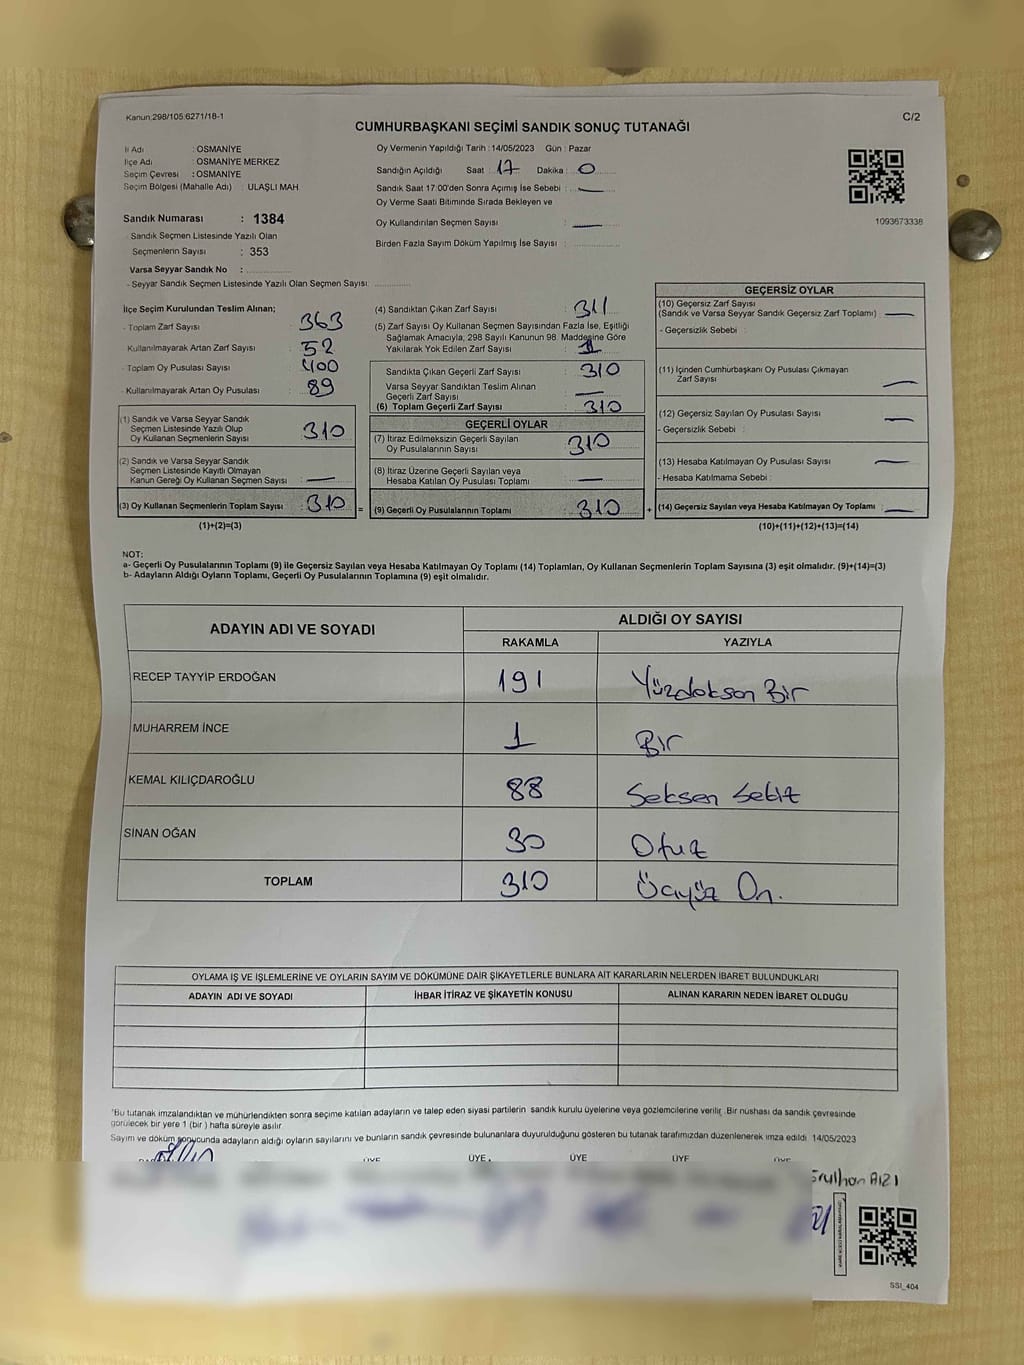 Kanun:298/105:6271/18-1
C/2
CUMHURBAŞKANI SEÇİMİ SANDIK SONUÇ TUTANAĞI
İl Adı : OSMANİYE
İlçe Adı : OSMANİYE MERKEZ
Seçim Çevresi : OSMANİYE
Seçim Bölgesi (Mahalle Adı) : ULAŞLI MAH
Sandık Numarası : 1384
Sandık Seçmen Listesinde Yazılı Olan
Seçmenlerin Sayısı : 353
Varsa Seyyar Sandık No :
- Seyyar Sandık Seçmen Listesinde Yazılı Olan Seçmen Sayısı:
Oy Vermenin Yapıldığı Tarih : 14/05/2023 Gün : Pazar
Sandığın Açıldığı Saat : 17 Dakika : 0
Sandık Saat 17:00'den Sonra Açımış İse Sebebi : —
Oy Verme Saati Bitiminde Sırada Bekleyen ve
Oy Kullandırılan Seçmen Sayısı : —
Birden Fazla Sayım Döküm Yapılmış İse Sayısı :
1093673338
İlçe Seçim Kurulundan Teslim Alınan;
- Toplam Zarf Sayısı : 363
Kullanılmayarak Artan Zarf Sayısı : 52
- Toplam Oy Pusulası Sayısı : 400
- Kullanılmayarak Artan Oy Pusulası : 89
(1) Sandık ve Varsa Seyyar Sandık
Seçmen Listesinde Yazılı Olup
Oy Kullanan Seçmenlerin Sayısı : 310
(2) Sandık ve Varsa Seyyar Sandık
Seçmen Listesinde Kayıtlı Olmayan
Kanun Gereği Oy Kullanan Seçmen Sayısı : —
(3) Oy Kullanan Seçmenlerin Toplam Sayısı : 310 =
(1)+(2)=(3)
(4) Sandıktan Çıkan Zarf Sayısı : 311
(5) Zarf Sayısı Oy Kullanan Seçmen Sayısından Fazla İse, Eşitliği
Sağlamak Amacıyla, 298 Sayılı Kanunun 98. Maddesine Göre
Yakılarak Yok Edilen Zarf Sayısı : 1
Sandıkta Çıkan Geçerli Zarf Sayısı : 310
Varsa Seyyar Sandıktan Teslim Alınan
Geçerli Zarf Sayısı : —
(6) Toplam Geçerli Zarf Sayısı : 310
GEÇERLİ OYLAR
(7) İtiraz Edilmeksizin Geçerli Sayılan
Oy Pusulalarının Sayısı : 310
(8) İtiraz Üzerine Geçerli Sayılan veya
Hesaba Katılan Oy Pusulası Toplamı : —
(9) Geçerli Oy Pusulalarının Toplamı : 310 +
GEÇERSİZ OYLAR
(10) Geçersiz Zarf Sayısı
(Sandık ve Varsa Seyyar Sandık Geçersiz Zarf Toplamı) : —
- Geçersizlik Sebebi :
(11) İçinden Cumhurbaşkanı Oy Pusulası Çıkmayan
Zarf Sayısı : —
(12) Geçersiz Sayılan Oy Pusulası Sayısı : —
- Geçersizlik Sebebi :
(13) Hesaba Katılmayan Oy Pusulası Sayısı : —
- Hesaba Katılmama Sebebi :
(14) Geçersiz Sayılan veya Hesaba Katılmayan Oy Toplamı : —
(10)+(11)+(12)+(13)=(14)
NOT:
a- Geçerli Oy Pusulalarının Toplamı (9) ile Geçersiz Sayılan veya Hesaba Katılmayan Oy Toplamı (14) Toplamları, Oy Kullanan Seçmenlerin Toplam Sayısına (3) eşit olmalıdır. (9)+(14)=(3)
b- Adayların Aldığı Oyların Toplamı, Geçerli Oy Pusulalarının Toplamına (9) eşit olmalıdır.
ADAYIN ADI VE SOYADI
ALDIĞI OY SAYISI
RAKAMLA YAZIYLA
RECEP TAYYİP ERDOĞAN 191 Yüzdoksan Bir
MUHARREM İNCE 1 Bir
KEMAL KILIÇDAROĞLU 88 Seksen Sekiz
SİNAN OĞAN 30 Otuz
TOPLAM 310 Üçyüz On.
OYLAMA İŞ VE İŞLEMLERİNE VE OYLARIN SAYIM VE DÖKÜMÜNE DAİR ŞİKAYETLERLE BUNLARA AİT KARARLARIN NELERDEN İBARET BULUNDUKLARI
ADAYIN ADI VE SOYADI İHBAR İTİRAZ VE ŞİKAYETİN KONUSU ALINAN KARARIN NEDEN İBARET OLDUĞU
*Bu tutanak imzalandıktan ve mühürlendikten sonra seçime katılan adayların ve talep eden siyasi partilerin sandık kurulu üyelerine veya gözlemcilerine verilir. Bir nüshası da sandık çevresinde
görülecek bir yere 1 (bir ) hafta süreyle asılır.
Sayım ve döküm sonucunda adayların aldığı oyların sayılarını ve bunların sandık çevresinde bulunanlara duyurulduğunu gösteren bu tutanak tarafımızdan düzenlenerek imza edildi. 14/05/2023
ÜYE ÜYE ÜYE ÜYE ÜYE
SSI_404